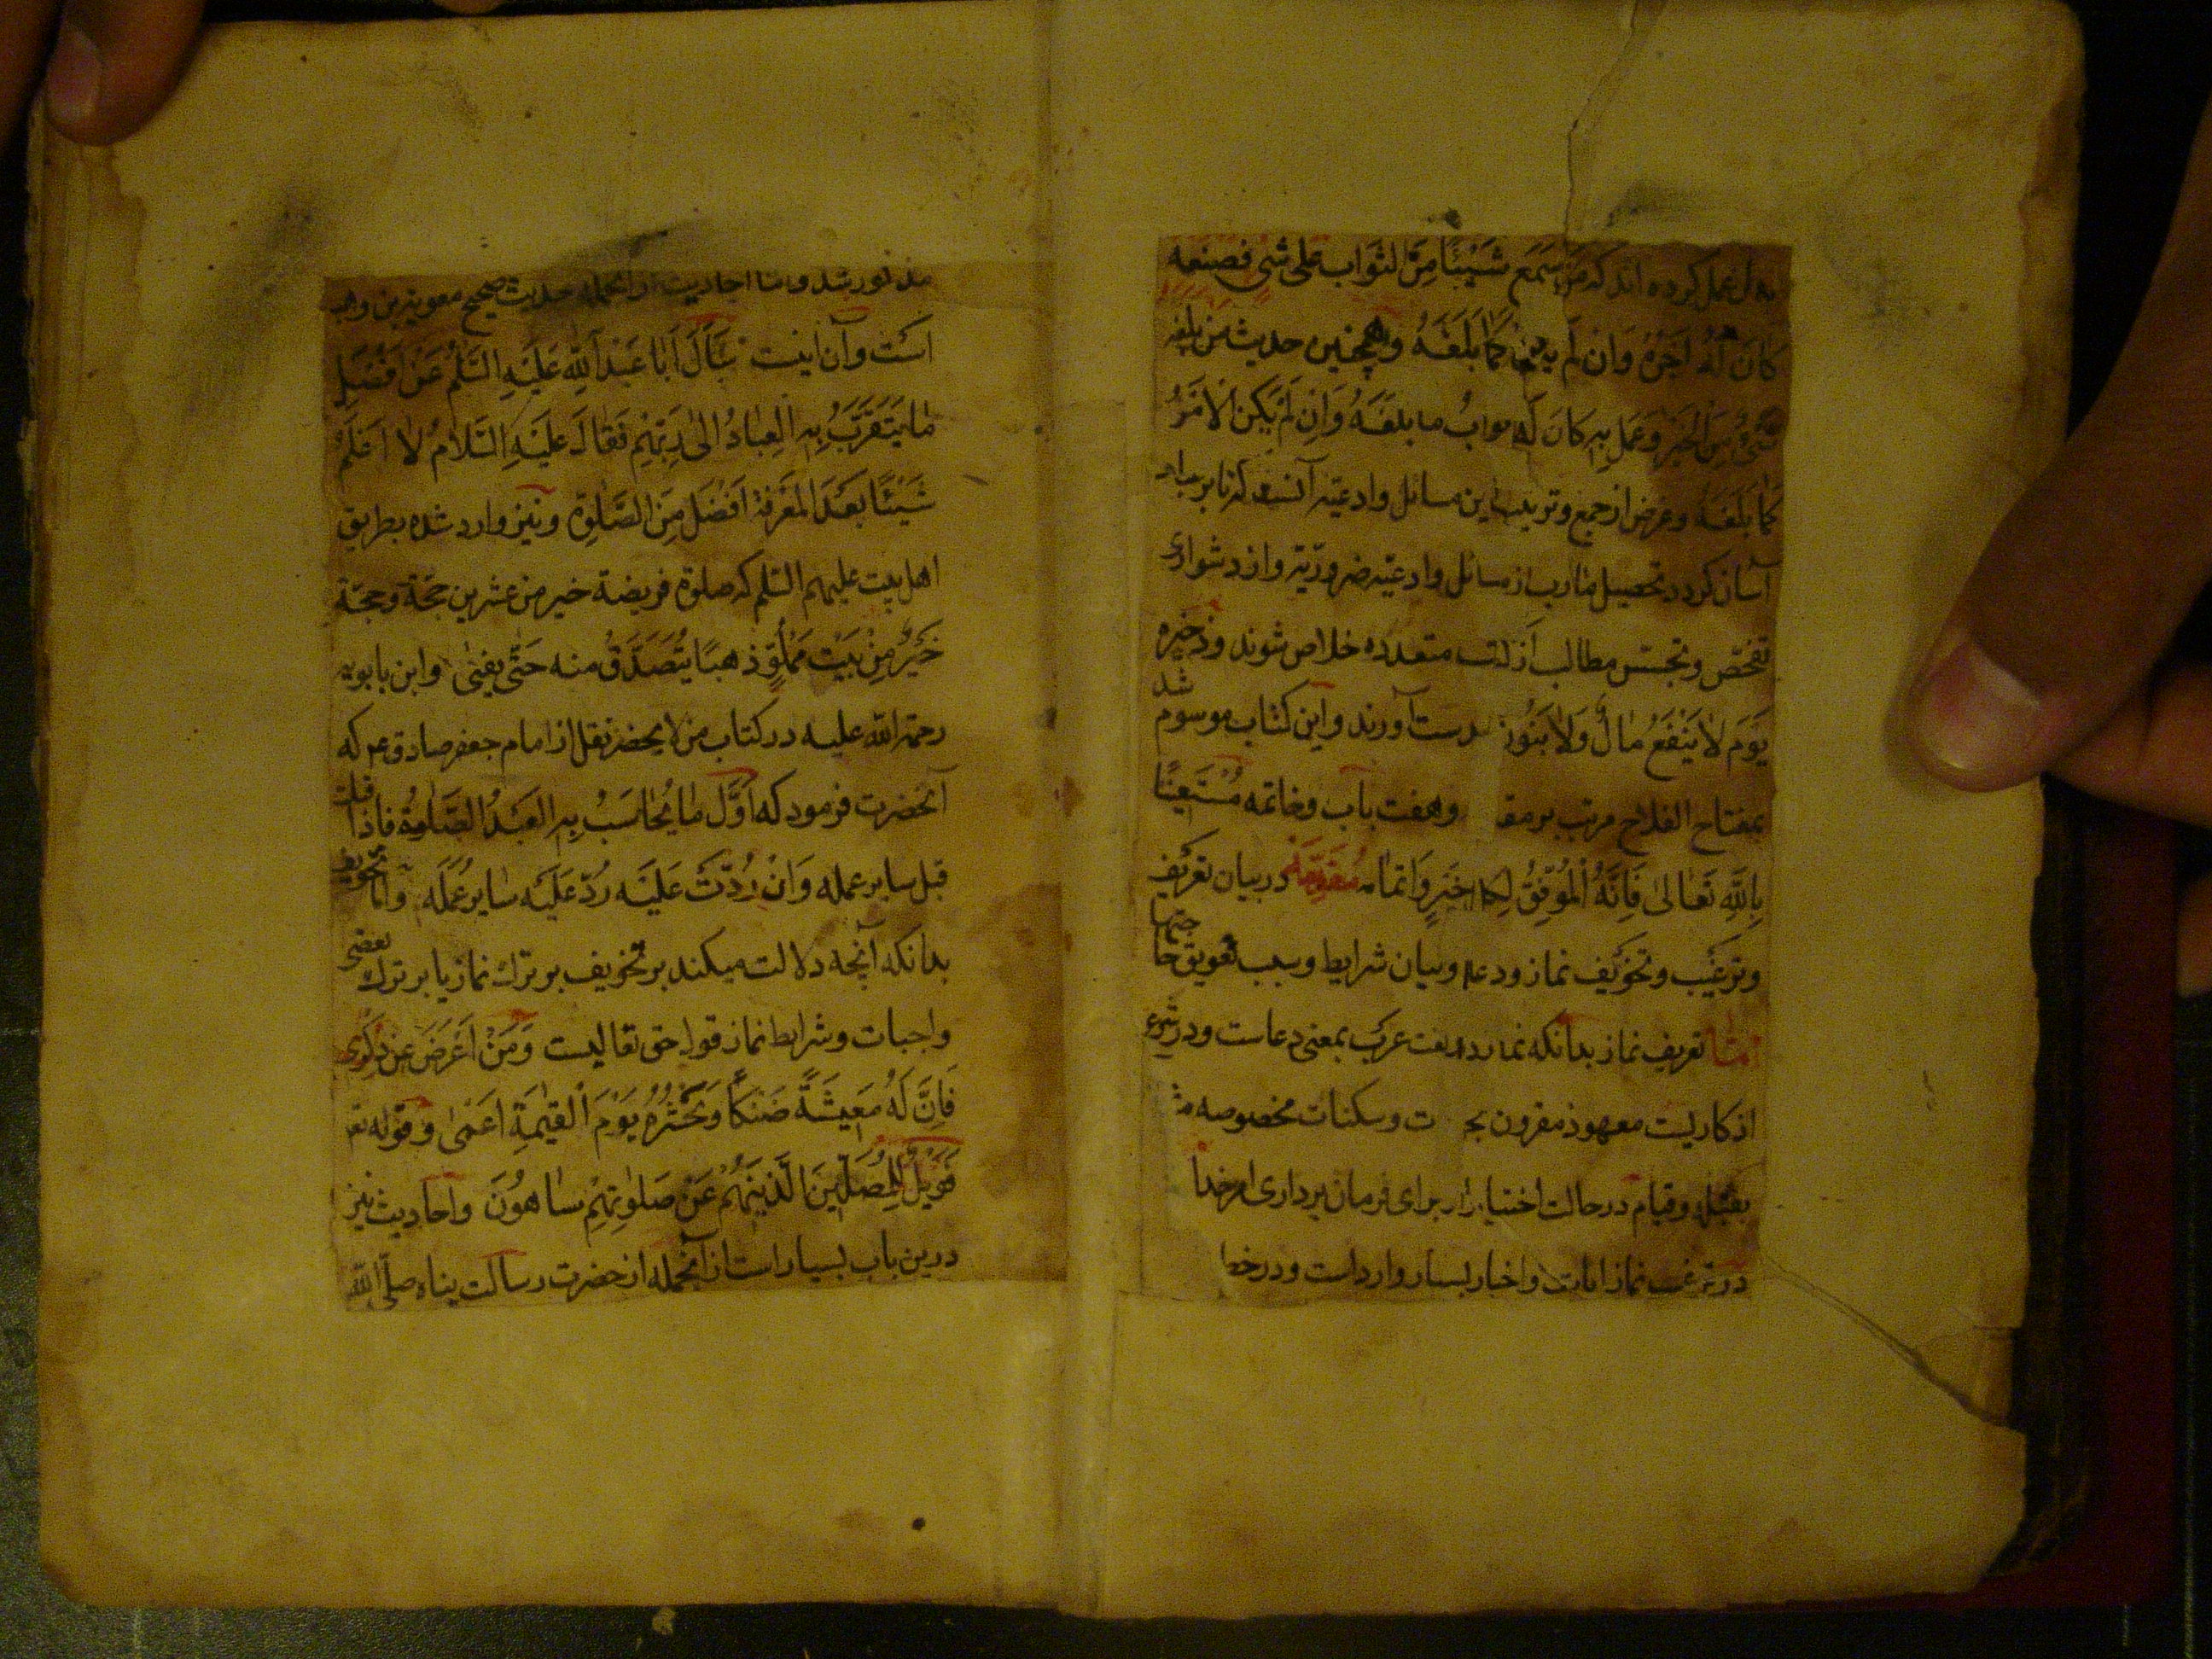 عمل کرده اند که من سمع شَیْئًا مِنَ الثَّواب علی شی فصنعه
کانَ لَهُ اَجرُهُ وَان لَم یکن کَما بَلَغَهُ وهمچنین حدیث من بلغه
شَیْءٌ مِنَ الْخَیرِ وَعَمَل بِهِ کانَ لَه ثوابُ ما بلغَهُ وَاِن لَم یَکُن الْاَمْرُ
کَما بَلَغَهُ وغرض از جمع وترتیب این مسائل وادعیّه آنست که تا برادر
آسان کردد تحصیل مآرب از مسائل وادعیّه ضروریّه واز دشواری
تفحّص وتجسّس مطالب از کتب متعدده خلاص شوند وذخیره
یَوْمَ لا یَنْفَعُ مالٌ وَلا بَنُونَ بدست آورند واین کتاب موسوم شد
بمفتاح الفلاح مرتب بر مقد وهفت باب وخاتمه مُسْتَعینًا
بِاللّهِ تَعالی فَاِنَّهُ الْمُوَفِّقُ لِکل خَیرٍ وَاتمام مُقَدِّمَه در بیان تعریف
وترغیب وتخویف نماز ودعا وبیان شرایط وسبب تعویق حاجتها
امّا تعریف نماز بدانکه نماز در لغت عرب بمعنی دعاست ودر شرع
اذکاریست معهود مقرون بحـ ت وسکنات مخصوصه
بقبله وقیام در حالت اختیار از برای فرمان برداری امر خدا
در ترغیب نماز ایات واخبار بسیار وارد است ودر خطـ
مذکور شد وامّا احادیث از آنجمله حدیث صحیح معویة بن وهب
است وآن اینست سَاَلَ اَبا عَبْدِ اللّهِ عَلَیْهِ السَّلمُ عَن اَفْضَلِ
ما یَتَقَرَّبُ بِهِ الْعِبادُ اِلی رَبِّهِم فَقالَ عَلَیْهِ السَّلامُ لا اَعْلَمُ
شَیْئًا بَعْدَ الْمَعْرِفَة اَفْضَلَ مِنَ الصَّلوةِ ونیز وارد شده بطریق
اهل بیت علیهم السّلم که صلوة فریضة خیر من عشرین حَجّة وحجّة
خَیْرٌ مِنْ بَیْت مَمْلُوٍّ ذهبًا یَتَصَدَّقُ منه حَتّی یفنی وابن بابویه
رحمة اللّه علیه در کتاب من لا یحضر نقل از امام جعفر صادق ع م که
آنحضرت فرمود که اَوَّلُ ما یُحاسَبُ بِهِ الْعَبْدُ الصَّلوةُ فاذا قبلت
قبل سایر عمله وَانْ رُدَّتْ عَلَیْه رُدَّ عَلَیْه سایر عَمَله وامّا تخویف
بدانکه آنچه دلالت میکند بر تخویف بر ترک نماز یا بر ترک بعضی
واجبات وشرایط نماز قول حق تعالیست وَمَنْ اَعْرَضَ عَن ذِکْری
فَاِنَّ لَهُ مَعِیشَةً ضَنْکًا وَنَحْشُرُهُ یَوْمَ الْقِیٰمَةِ اَعْمٰی وقوله تعـ
فَوَیْلٌ لِلْمُصَلِّینَ الَّذینَ هُمْ عَنْ صَلوتِهِمْ ساهُونَ واحادیث نیز
درین باب بسیار است از آنجمله از حضرت رسالت پناه صلّی اللّه